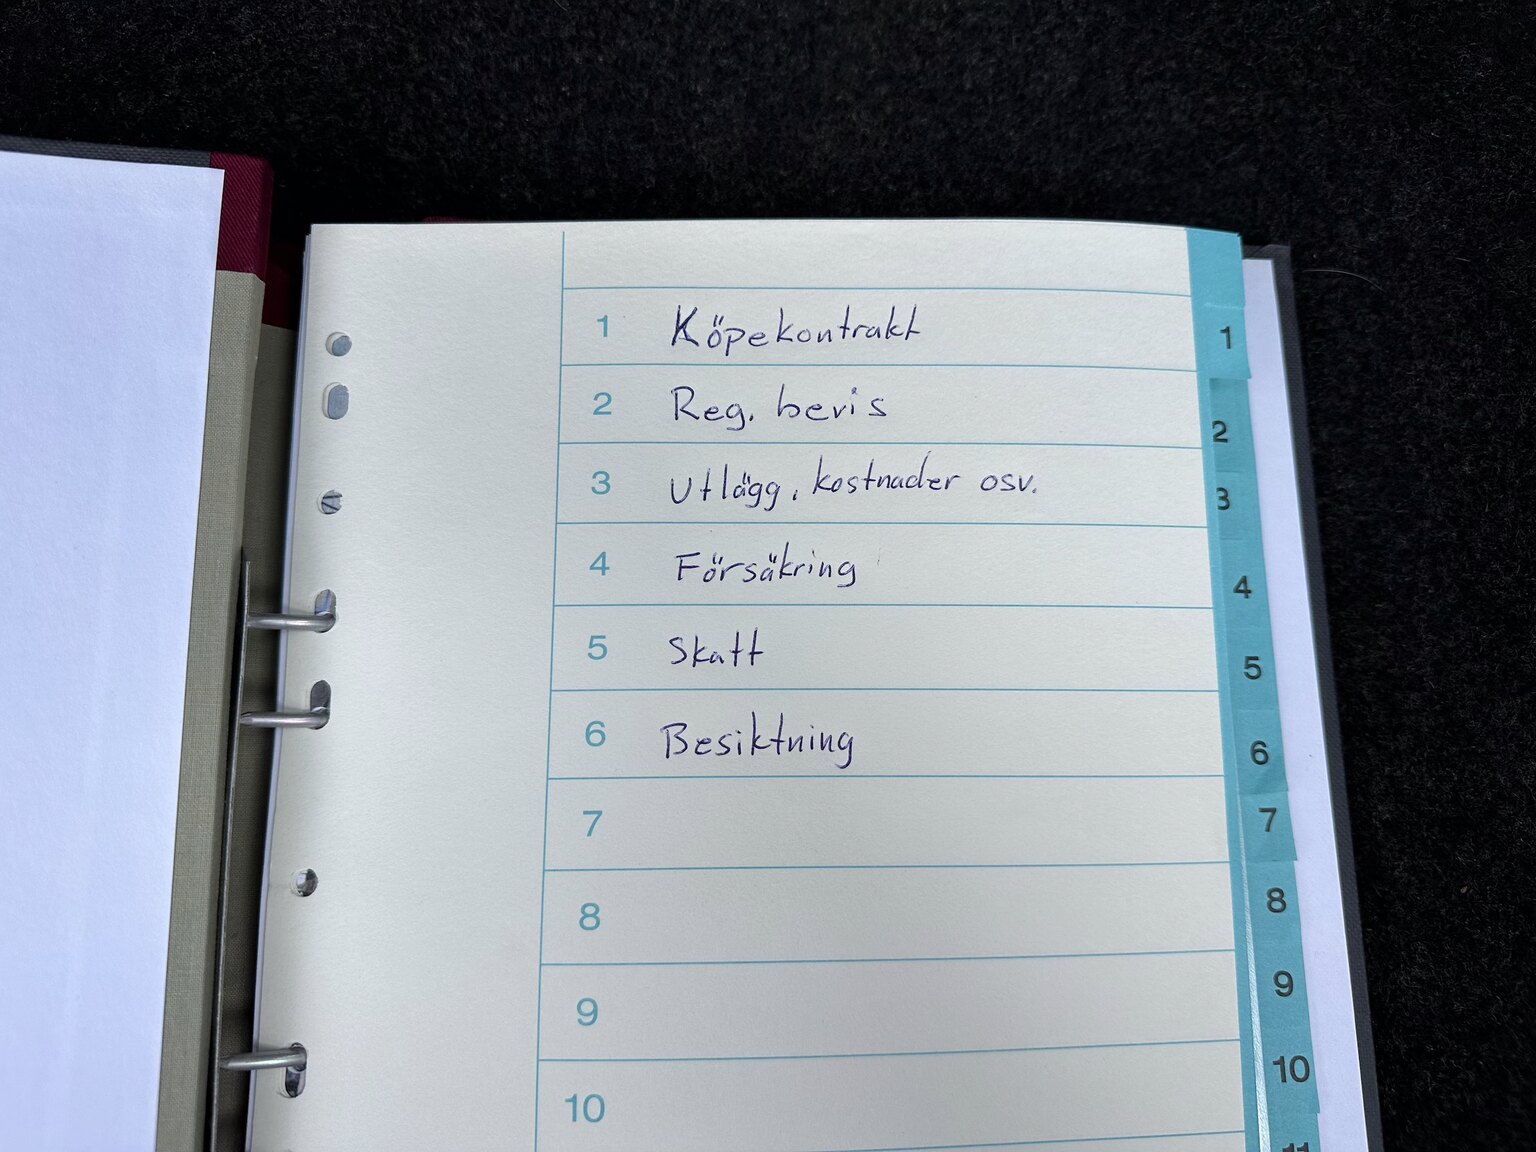 1 Köpekontrakt 1
2 Reg. bevis 2
3 Utlägg, kostnader osv. 3
4 Försäkring 4
5 Skatt 5
6 Besiktning 6
7 7
8 8
9 9
10 10
11